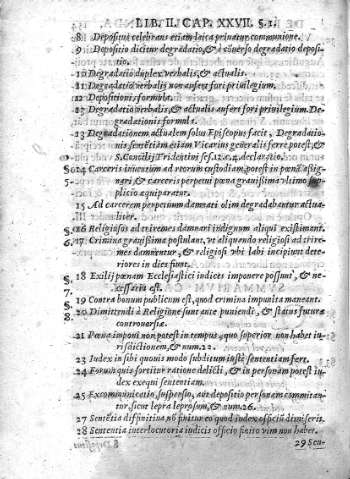 LIB. II. CAP. XXVII. §.1.
8 Depositus celebrans etiam laica priuatur communione.
9 Depositio dicitur degradatio, & è cōuerso degradatio depositio.
10 Degradatio duplex verbalis, & actualis.
11 Degradatio verbalis non aufert fori priuilegium.
12 Depositionis formula.
verbalis, & actualis aufert fori priuilegium. Degradationis formula.
13 Degradationem actualem solus Episcopus facit, Degradationis sentētiā etiam Vicarius generalis ferre potest, &
S. Concilij Tridentini ses. declaratio.
§. 14 Carceris inuentum ad reorum custodiam, potest in pœnā assignari,
5 & carceris perpetui pœna grauissima vltimo supplicio æquiparatur.
15 Ad carcerem perpetuum damnati olim degradabantur actualiter.
§. 16 Religiosos ad triremes damnari indignum aliqui existimant.
6. 17 Crimina grauissima postulant, vt aliquando religiosi ad triremes damnentur, & religiosi vbi labi incipiunt deteriores in dies fiunt.
§. 18 Exilij pœnam Ecclesiastici iudices imponere possunt, & necessaria est.
7.
§. 19 Contra bonum publicum est, quod crimina impunita maneant.
8 20 Dimittendi à Religione sunt ante puniendi, & status futuræ controuersiæ.
21 Pœna imponi non potest in tempus, quo superior non habet iurisdictionem, & num. 22.
23 Iudex in sibi quouis modo subditum iustè sententiam fert.
24 Forum quis sortitur ratione delicti, & in personam potest iudex exequi sententiam.
25 Excommunicatio, suspensio, aut depositio personam comitantur, sicut lepra leprosum, & num. 26.
27 Sentētia diffinitiua
28 Sententia interlocutoria iudicis officio finito vim non habet.
29 Sen-